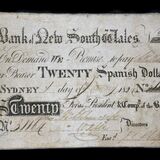 Bank of New South Wales
On Demand We Promise to pay
or Bearer TWENTY Spanish Dollars
SYDNEY day of 18
Twenty For the President & Compy. of the
No. Directors
Entd.